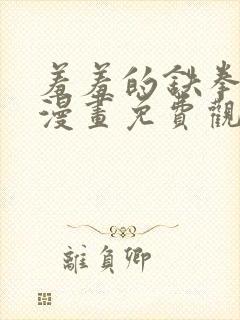 羞羞的鉄拳
漫畫免費觀
離負卿